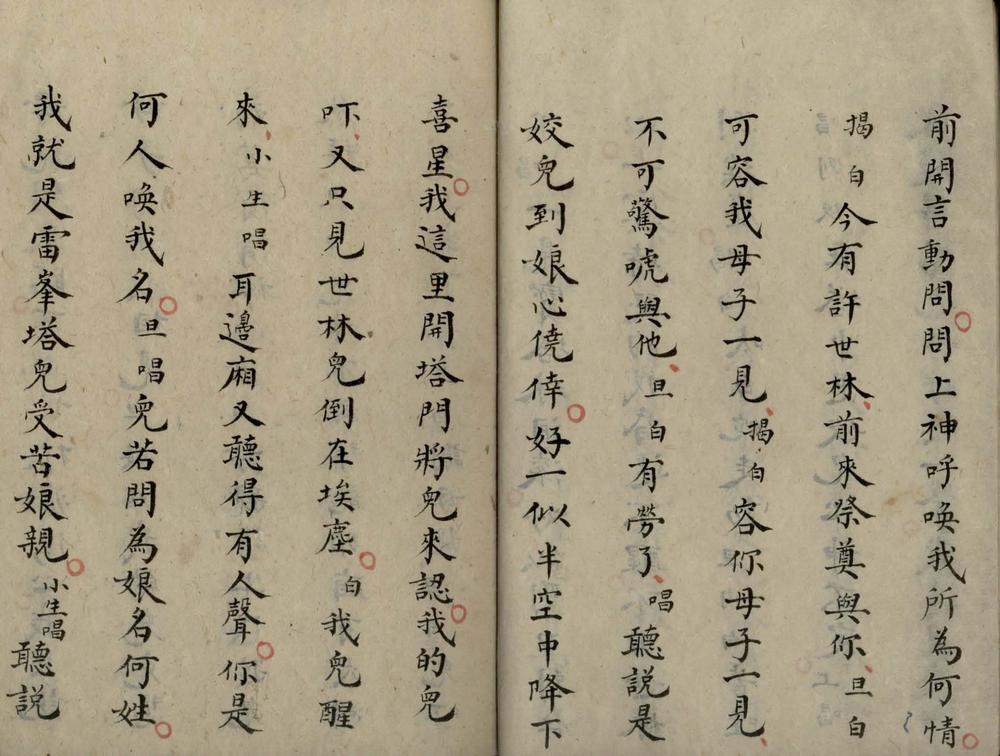 前開言動問問上神呼喚我所為何情
揭白今有許世林前來祭奠與你旦白
可容我母子一見揭白容你母子一見
不可驚唬與他旦白有勞了唱聽說是
姣兒到娘心僥倖好一似半空中降下
喜星我這里開塔門將兒來認我的兒
吓又只見世林兒倒在埃塵白我兒醒
來小生唱耳邊廂又聽得有人聲你是
何人喚我名旦唱兒若問為娘名何姓
我就是雷峯塔兒受苦娘親小生唱聽説